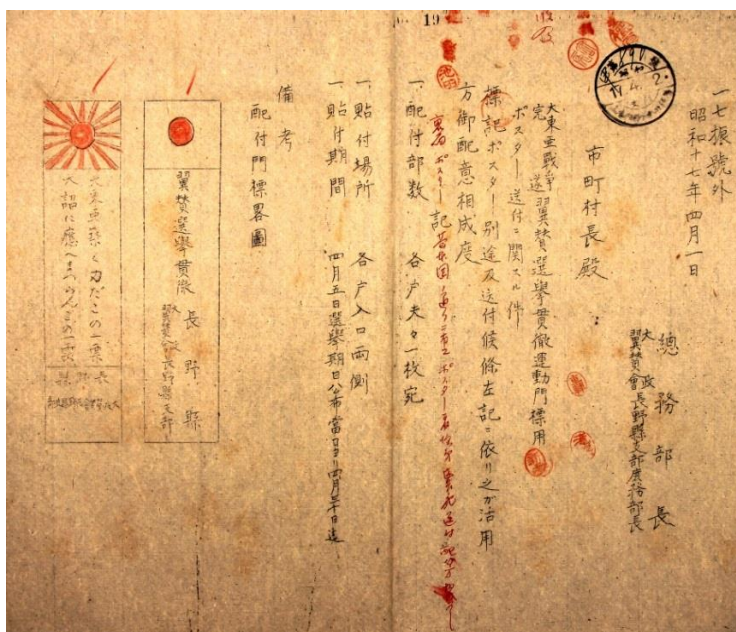 一七振號外
昭和十七年四月一日
總務部長
大政翼賛會長野縣支部庶務部長
市町村長殿
大東亜戰爭完遂翼賛選擧貫徹運動門標用
ポスター送付ニ関スル件
標記ポスター別途及送付候條左記ニ依リ之ガ活用
方御配意相成度
記
一、配付部数 各戸夫々一枚宛
一、貼付場所 各戸入口両側
一、貼付期間 四月五日選擧期日公布當日ヨリ四月三十日迄
備考
配付門標畧圖
翼賛選擧貫徹
長野縣
大政翼賛會長野縣支部
大東亜築く力だこの一票
大詔に應へまつらんこの一票
長野縣
19